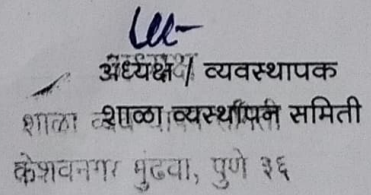 अध्यक्ष / व्यवस्थापक
शाळा व्यस्थापन समिती
केशवनगर मुंढवा, पुणे ३६